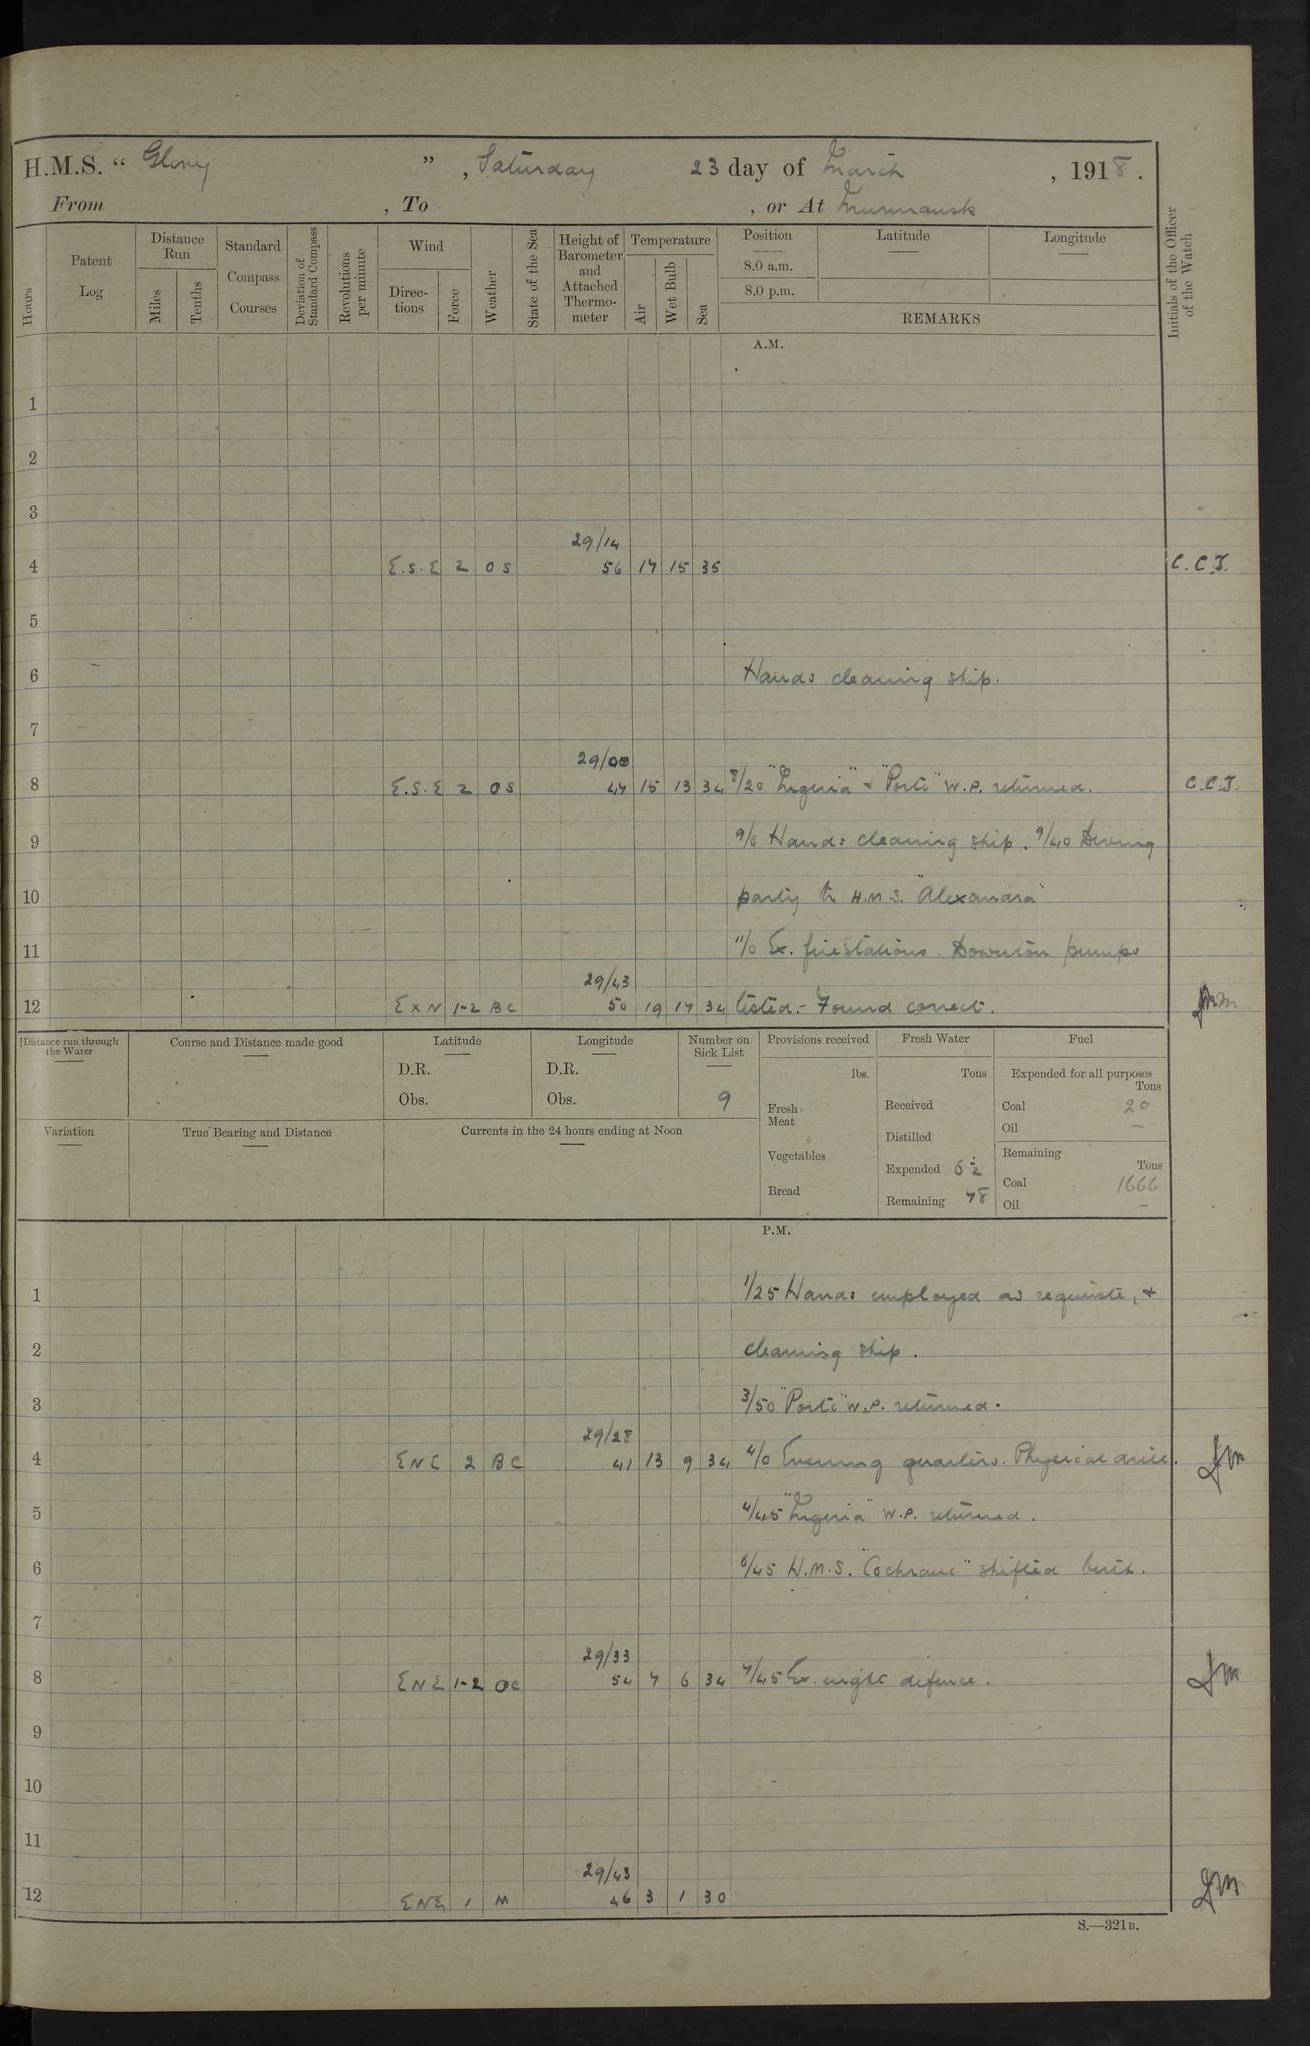 H.M.S. “ Glory ” , Saturday 23 day of March , 1918 .
From , To , or At Murmansk
Hours
Patent Log
Distance Run
Miles
Tenths
Standard Compass Courses
Deviation of Standard Compass
Revolutions per minute
Wind
Directions
Force
Weather
State of the Sea
Height of Barometer and Attached Thermometer
Temperature
Air
Wet Bulb
Sea
Position
8.0 a.m.
8.0 p.m.
Latitude
Longitude
REMARKS
Initials of the Officer of the Watch
A.M.
1
2
3
29/14
4 E.S.E 2 O S 56 17 15 35 C.C.J.
5
6 Hands cleaning ship.
7
29/00
8 E.S.E 2 O S 47 15 13 34 8/20 "Ingeria" + "Porti" W.P. returned. C.C.J.
9 9/0 Hands cleaning ship. 9/40 Diving
10 party to H.M.S. "Alexandra"
11 11/0 Ex. fire stations. Downton pumps
29/43
12 E x N 1-2 B C 50 19 17 34 tested.- Found correct.
Distance run through the Water
Course and Distance made good
Latitude
D.R.
Obs.
Longitude
D.R.
Obs.
Number on Sick List
9
Provisions received
lbs.
Fresh Meat
Vegetables
Bread
Fresh Water
Tons
Received
Distilled
Expended 6 1/2
Remaining 78
Fuel
Expended for all purposes
Tons
Coal 20
Oil —
Remaining
Tons
Coal 1666
Oil —
Variation
True Bearing and Distance
Currents in the 24 hours ending at Noon
P.M.
1 1/25 Hands employed as requisite, +
2 cleaning ship.
3 3/50 "Porti" W.P. returned.
29/28
4 E N E 2 B C 41 13 9 34 4/0 Evening quarters. Physical drill.
5 4/45 "Ingeria" W.P. returned.
6 6/45 H.M.S. "Cochrane" shifted berth.
7
29/33
8 E N E 1-2 O C 54 7 6 34 7/45 Ex. night defence.
9
10
11
29/43
12 E N E 1 M 46 3 1 30
S.—321B.